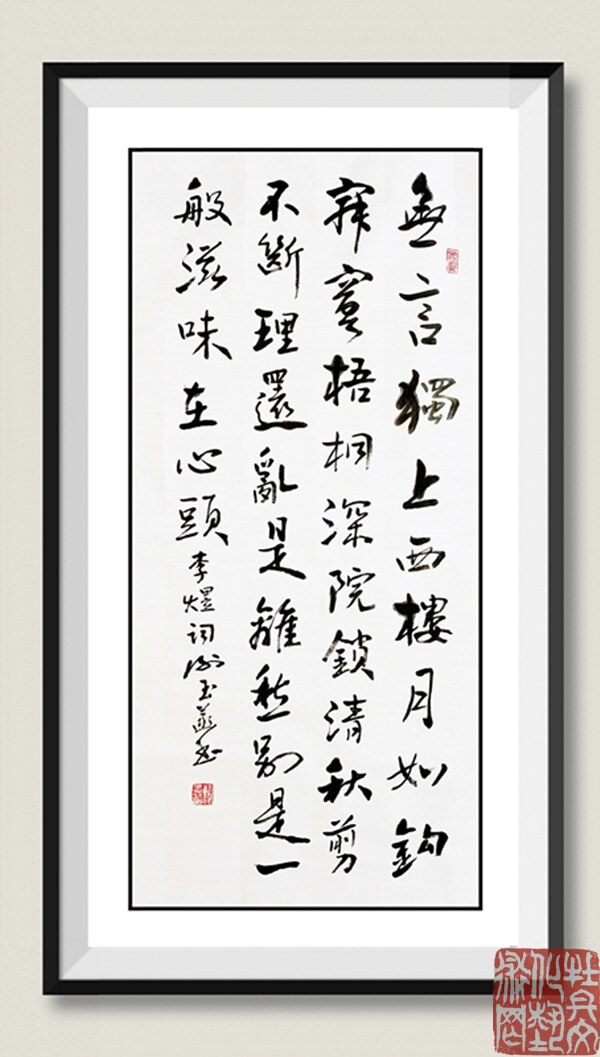 無言獨上西樓月如鈎
寂寞梧桐深院鎖清秋剪
不斷理還亂是離愁別是一
般滋味在心頭李煜詞